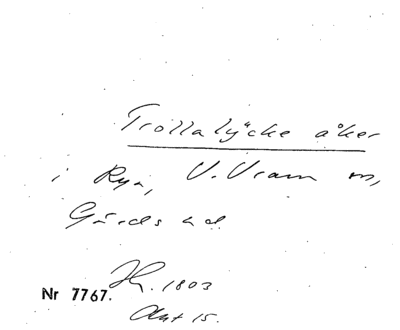 Trollalycke åker
i Rya, V. Vram sn,
Gärds hd.
Nr 7767.
1803
Akt 15.